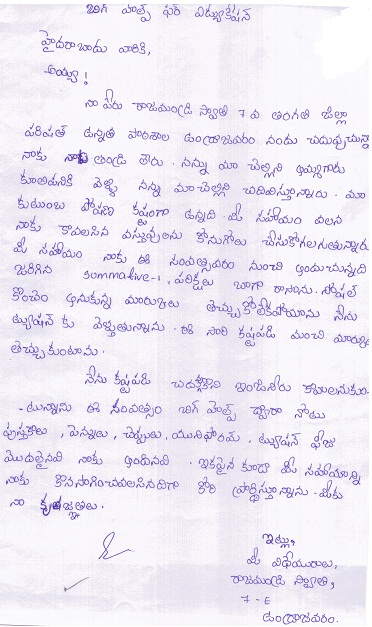 బిగ్ హెల్ప్ ఫర్ ఎడ్యుకేషన్
హైదరాబాదు వారికి,
అయ్యా!
నా పేరు రాజమండ్రి స్వాతి 7 వ తరగతి జిల్లా
పరిషత్ ఉన్నత పాఠశాల ఉండ్రాజవరం నందు చదువుచున్నా
నాకు తండ్రి లేరు. నన్ను మా చెల్లిని అమ్మగారు
కూలిపనికి వెళ్ళి నన్ను మా చెల్లిని చదివిస్తున్నారు. మా
కుటుంబ పోషణ కష్టంగా ఉన్నది. మీ సహాయం వలన
నాకు కావలసిన వస్తువులను కొనుగోలు చేసుకోగలుగుతున్నాను
మీ సహాయం నాకు ఈ సంవత్సరం నుంచి అందుచున్నది
జరిగిన summative-1, పరీక్షలు బాగా రాసాను. సోషల్
కొంచెం అనుకున్న మార్కులు తెచ్చుకోలేకపోయాను నేను
ట్యూషన్ కు వెళ్తుతున్నాను. ఈ సారి కష్టపడి మంచి మార్కులు
తెచ్చుకుంటాను.
నేను కష్టపడి చదువుకొని ఇంజనీరు కావాలనుకుం-
-టున్నాను ఈ సంవత్సం బిగ్ హెల్ప్ ద్వారా నోటు
పుస్తకాలు, పెన్నులు, చెప్పులు, యునిఫారమ్, ట్యూషన్ ఫీజు
మొదలైనవి నాకు అందినవి. ఇకపైన కూడా మీ సహాయాన్ని
నాకు కొనసాగించవలసినదిగా కోరి ప్రార్థిస్తున్నాను. మీకు
నా కృతజ్ఞతలు.
ఇట్లు,
మీ విధేయురాలు,
రాజమండ్రి స్వాతి,
7 - E
ఉండ్రాజవరం.